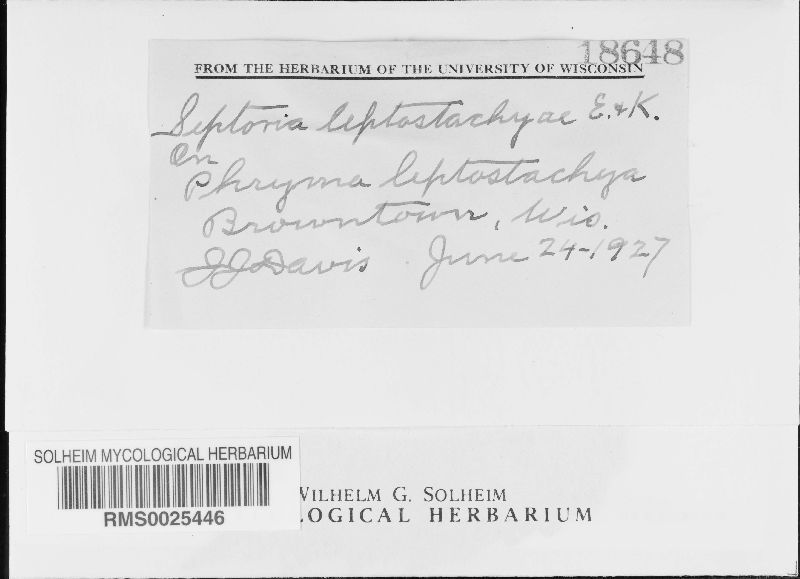 18648
FROM THE HERBARIUM OF THE UNIVERSITY OF WISCONSIN
Septoria leptostachyae E. & K.
On
Phryma leptostachya
Browntown, Wis.
JJDavis June 24-1927
SOLHEIM MYCOLOGICAL HERBARIUM
RMS0025446
WILHELM G. SOLHEIM
LOGICAL HERBARIUM